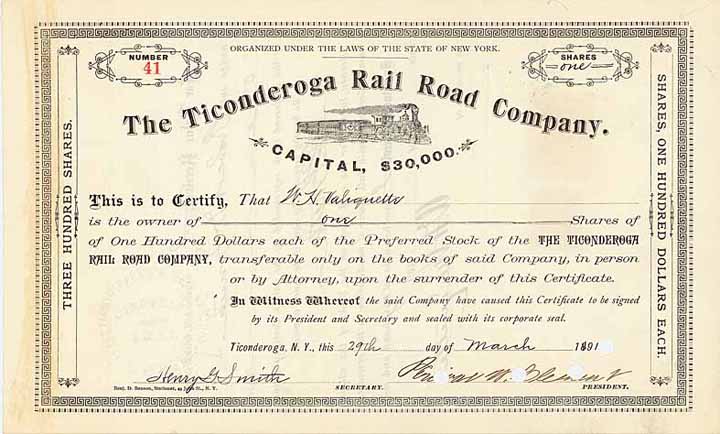 ORGANIZED UNDER THE LAWS OF THE STATE OF NEW YORK.
NUMBER
41
SHARES
one
The Ticonderoga Rail Road Company.
CAPITAL, $30,000.
THREE HUNDRED SHARES.
SHARES, ONE HUNDRED DOLLARS EACH.
This is to Certify, That W. H. Valiquette
is the owner of one Shares of
of One Hundred Dollars each of the Preferred Stock of the THE TICONDEROGA
RAIL ROAD COMPANY, transferable only on the books of said Company, in person
or by Attorney, upon the surrender of this Certificate.
In Witness Whereof the said Company have caused this Certificate to be signed
by its President and Secretary and sealed with its corporate seal.
Ticonderoga, N. Y., this 29th day of March 1891
Henry G. Smith
Benj. D. Benson, Stationer, John St., N. Y.
SECRETARY.
PRESIDENT.